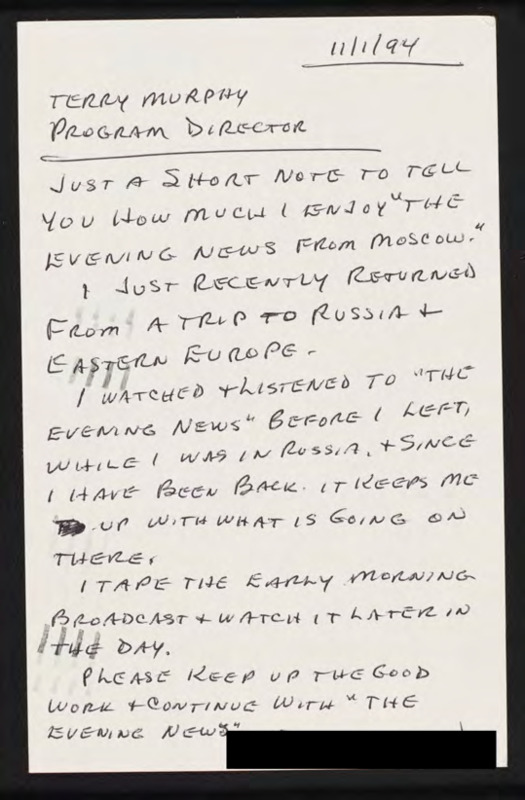 11/1/94
TERRY MURPHY
PROGRAM DIRECTOR
JUST A SHORT NOTE TO TELL
YOU HOW MUCH I ENJOY "THE
EVENING NEWS FROM MOSCOW."
I JUST RECENTLY RETURNED
FROM A TRIP TO RUSSIA +
EASTERN EUROPE.
I WATCHED + LISTENED TO "THE
EVENING NEWS" BEFORE I LEFT,
WHILE I WAS IN RUSSIA, + SINCE
I HAVE BEEN BACK. IT KEEPS ME
UP WITH WHAT IS GOING ON
THERE.
I TAPE THE EARLY MORNING
BROADCAST + WATCH IT LATER IN
THE DAY.
PLEASE KEEP UP THE GOOD
WORK + CONTINUE WITH "THE
EVENING NEWS"